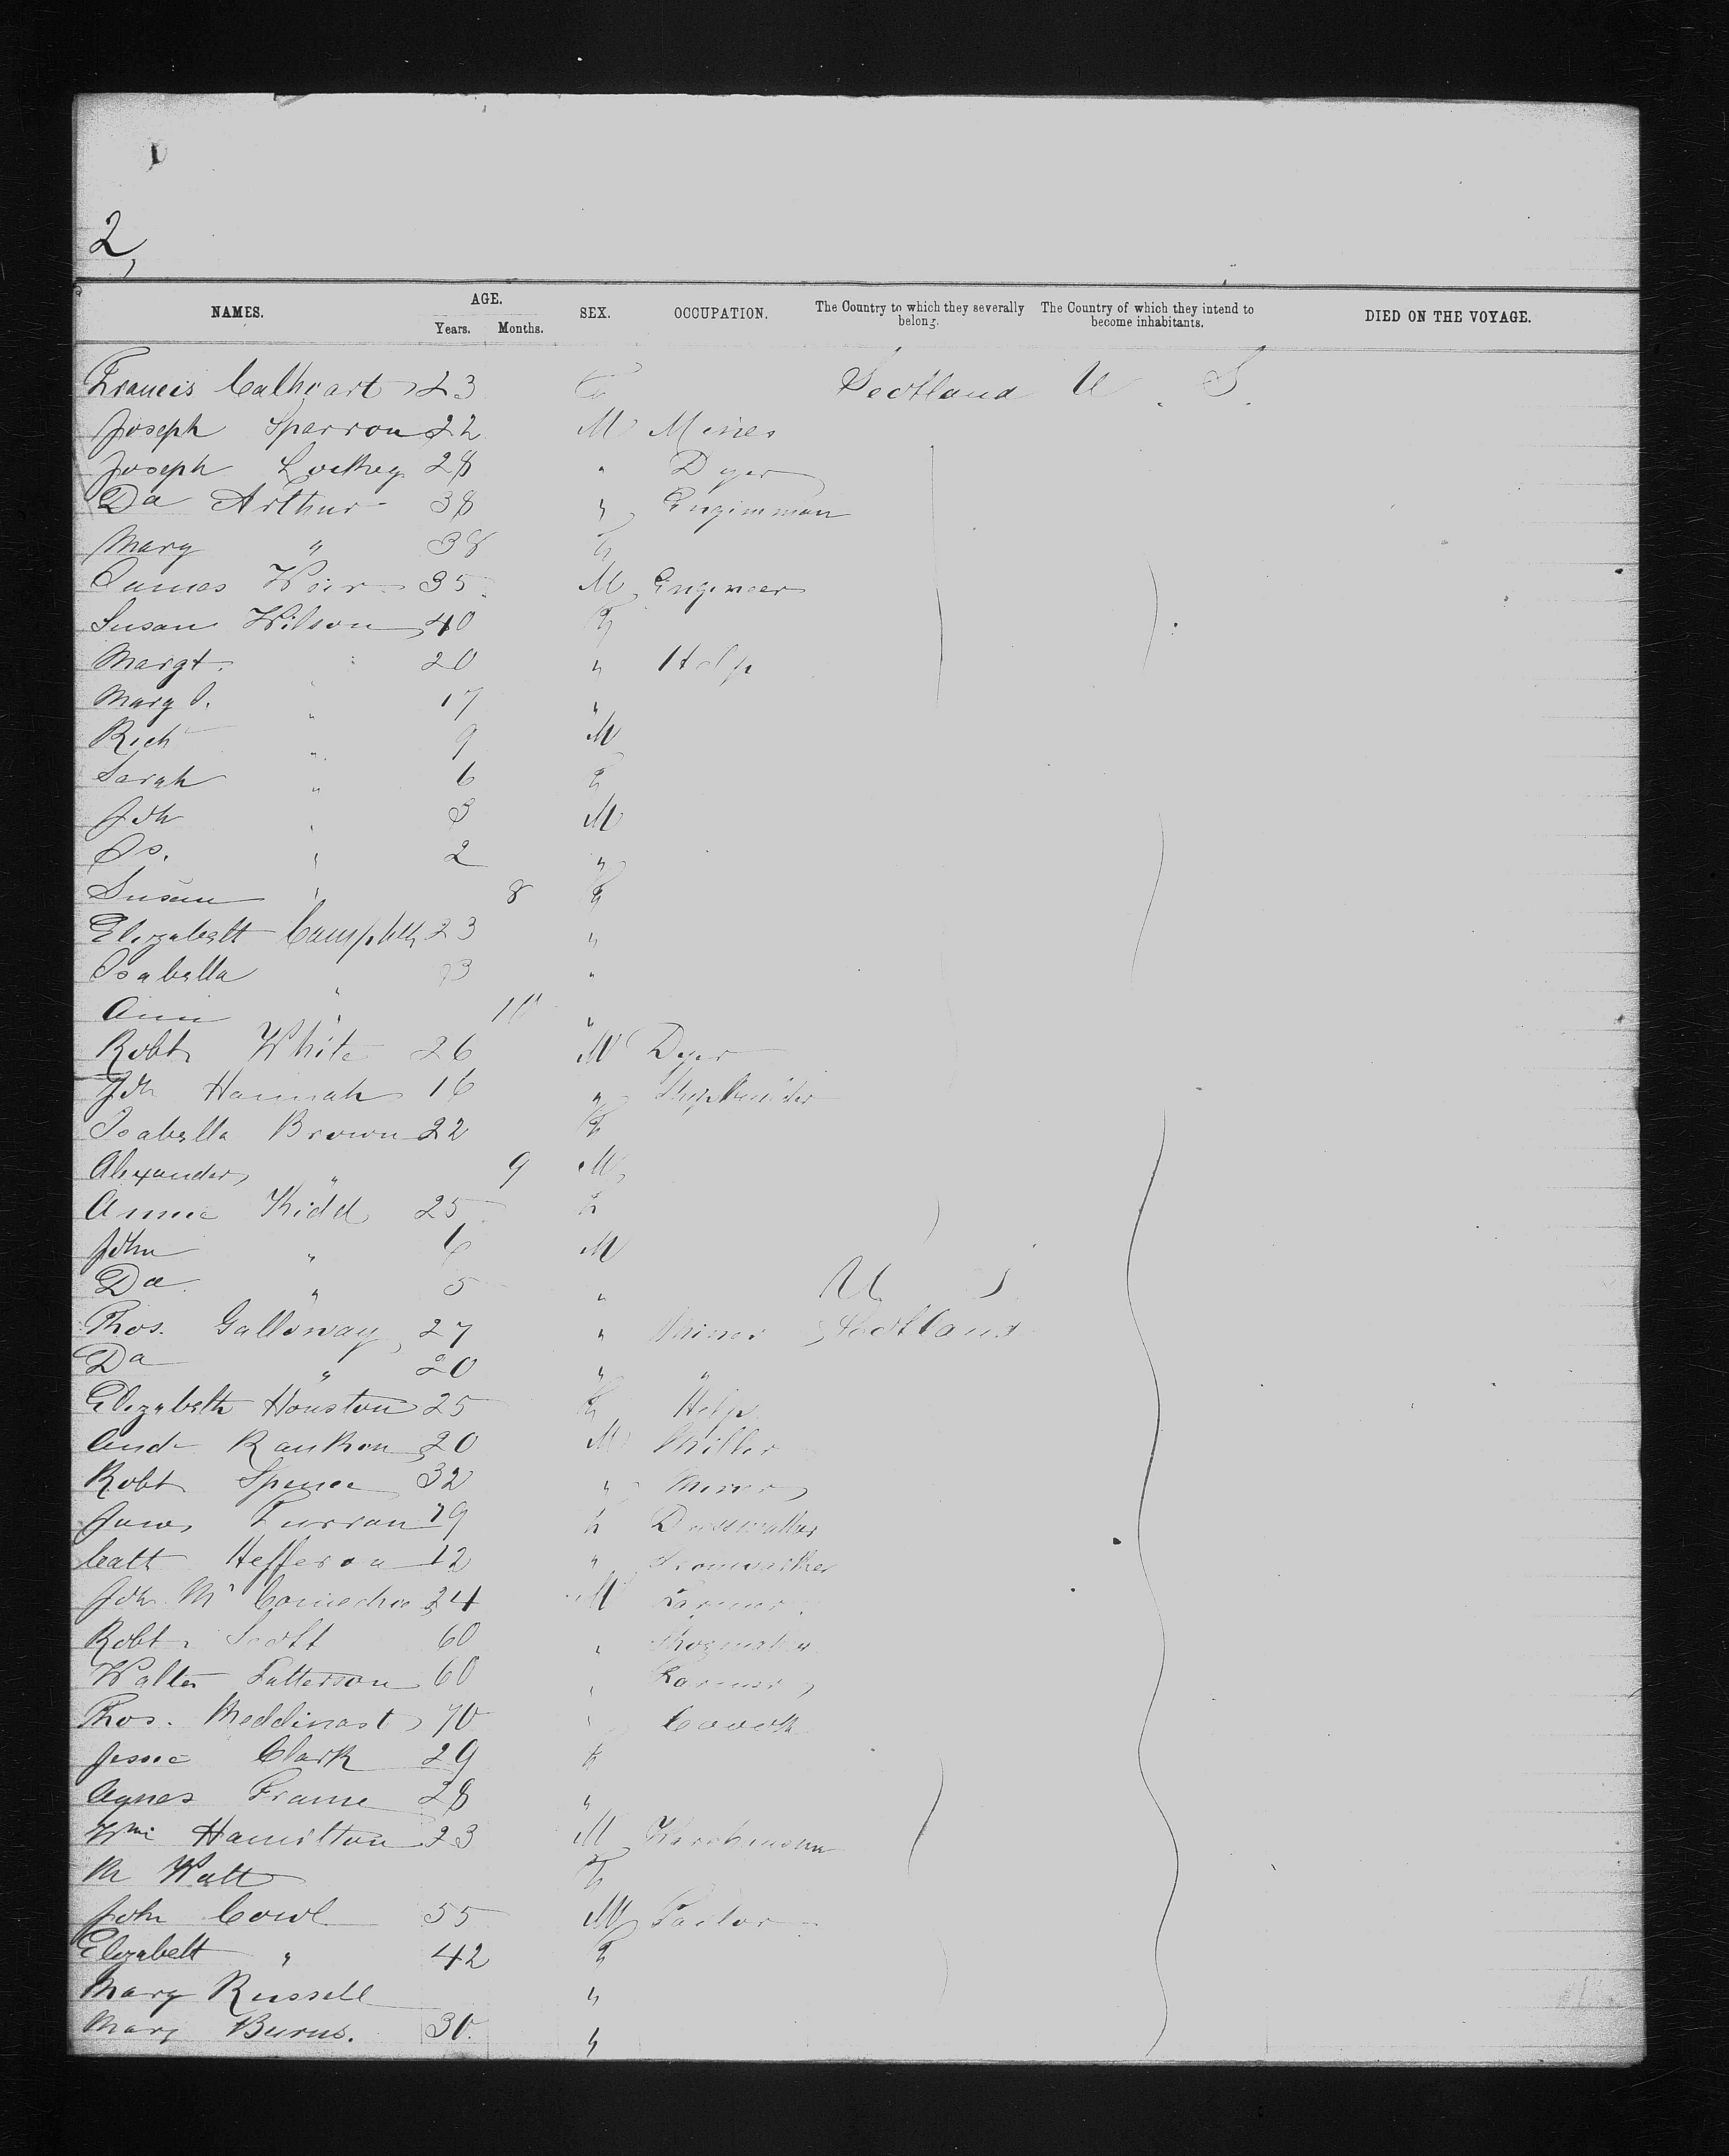 2,
NAMES. AGE. Years. Months. SEX. OCCUPATION. The Country to which they severally belong. The Country of which they intend to become inhabitants. DIED ON THE VOYAGE.
Francis Cathcart 23 F Scotland U. S.
Joseph Sparron 22 M Miner
Joseph 28 " Dyer
Da Arthur 38 " Engineman
Mary " 38 F
James Weir 35 M Engineer
Susan Wilson 40 F
Margt. " 20 " Help
Mary J. " 17 "
Rich " 9 M
Sarah " 6 F
Joh " 3 M
Js. " 2 "
Susan " 8 F
Elizabeth Campbell 23 "
Isabella " 3 "
Ann " 10 "
Robt White 26 M Dyer
Joh Hannah 16 " Shipbuilder
Isabella Brown 22 F
Alexander " 9 M
Annie Kidd 25 F
John " 6 M
Da. " 5 " U S
Thos. Galloway 27 " Miner Scotland
Da " 20 " "
Elizabeth Houston 25 F Help
And Rankon 20 M Miller
Robt Spence 32 " Miner
Curran 19 F Dressmaker
Cath Hefferon 12 "
Joh Mc 24 M Farmer
Robt Scott 60 " Shoemaker
Walter Patterson 60 " Farmer
Thos. 70 "
Jessie Clark 29 F
Agnes Frame 28 "
Wm Hamilton 23 M
M Watt F
John Cowl 55 M Tailor
Elizabeth " 42 F
Mary Russell "
Mary Burns. 30. "